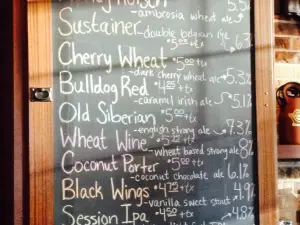 -ambrosia wheat ale 5.5
Sustainer $5.00 +tx
-double belgian 6.3
Cherry Wheat $5.00 +tx
-dark cherry wheat ale 5.3%
Bulldog Red $4.25 +tx
-caramel irish ale 5.1%
Old Siberian $5.00 +tx
-english strong ale 7.3%
Wheat Wine $5.00 +tx
-wheat based strong ale 8%
Coconut Porter $5.00 +tx
-coconut chocolate ale 6.1%
Black Wings $4.75 +tx
-vanilla sweet stout 4.9%
Session Ipa $4.50 +tx
4.8%